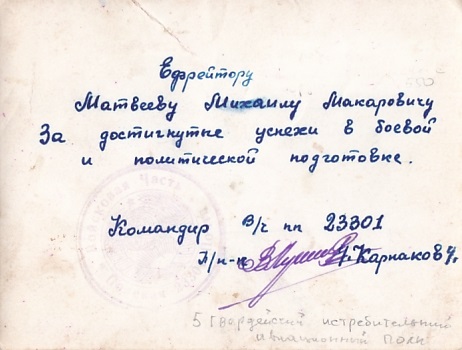 Ефрейтору
Матвееву Михаилу Макаровичу
За достигнутые успехи в боевой
и политической подготовке.
Командир в/ч пп 23301
П/п-к /Карнаков/
5 Гвардейский истребительный
авиационный полк